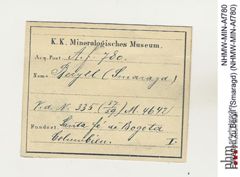 K. K. Mineralogisches Museum.
Acq. Post A. f. 780.
Name Beryll (Smaragd)
V. d. N. 335 (17/29) M. 4647
Fundort Santa fé de Bogota
Columbien. I.
NHMW-MIN-Af780
Beryll (Smaragd) (NHMW-MIN-Af780)
nhm